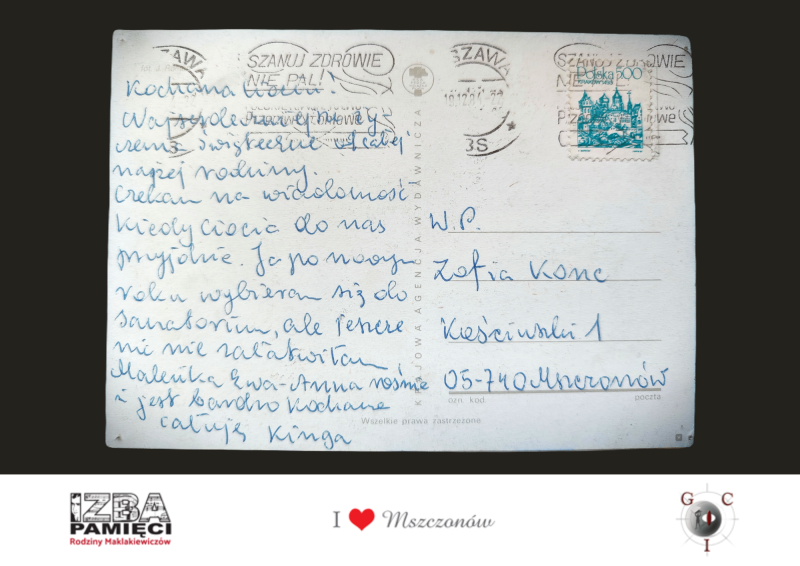 SZANUJ ZDROWIE
NIE PAL!
SZAWA
SZANUJ ZDROWIE
Polska 500
Kochana Ciociu!
Najserdeczniejsze ży-
czenia świąteczne od całej
naszej rodziny.
Czekam na wiadomość
Kiedy Ciocia do nas
przyjdzie. Ja po nowym
roku wybieram się do
sanatorium, ale jeszcze
nic nie załatwiłam
Maleńka Ewa-Anna rośnie
i jest bardzo kochane
całuję Kinga
KRAJOWA AGENCJA WYDAWNICZA
W.P.
Zofia Konc
Kościuszki 1
05-740 Mszczonów
ozn. kod.
poczta
Wszelkie prawa zastrzeżone
IZBA
PAMIĘCI
Rodziny Maklakiewiczów
I ❤ Mszczonów
G C
I